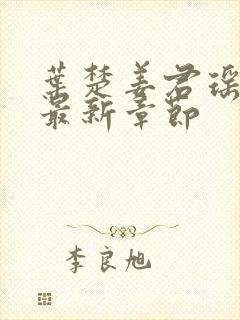 葉楚姜君瑶
最新章節
李良旭